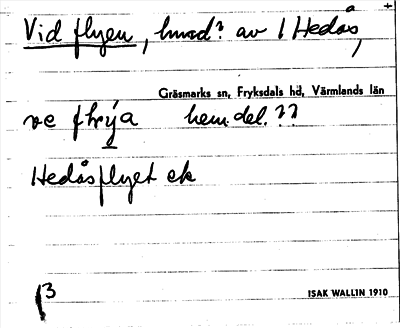 Vid flyen, hmd? av 1 Hedås,
Gräsmarks sn, Fryksdals hd, Värmlands län
ve flrýa hem.del.??
Hedåsflyet ek
ISAK WALLIN 1910